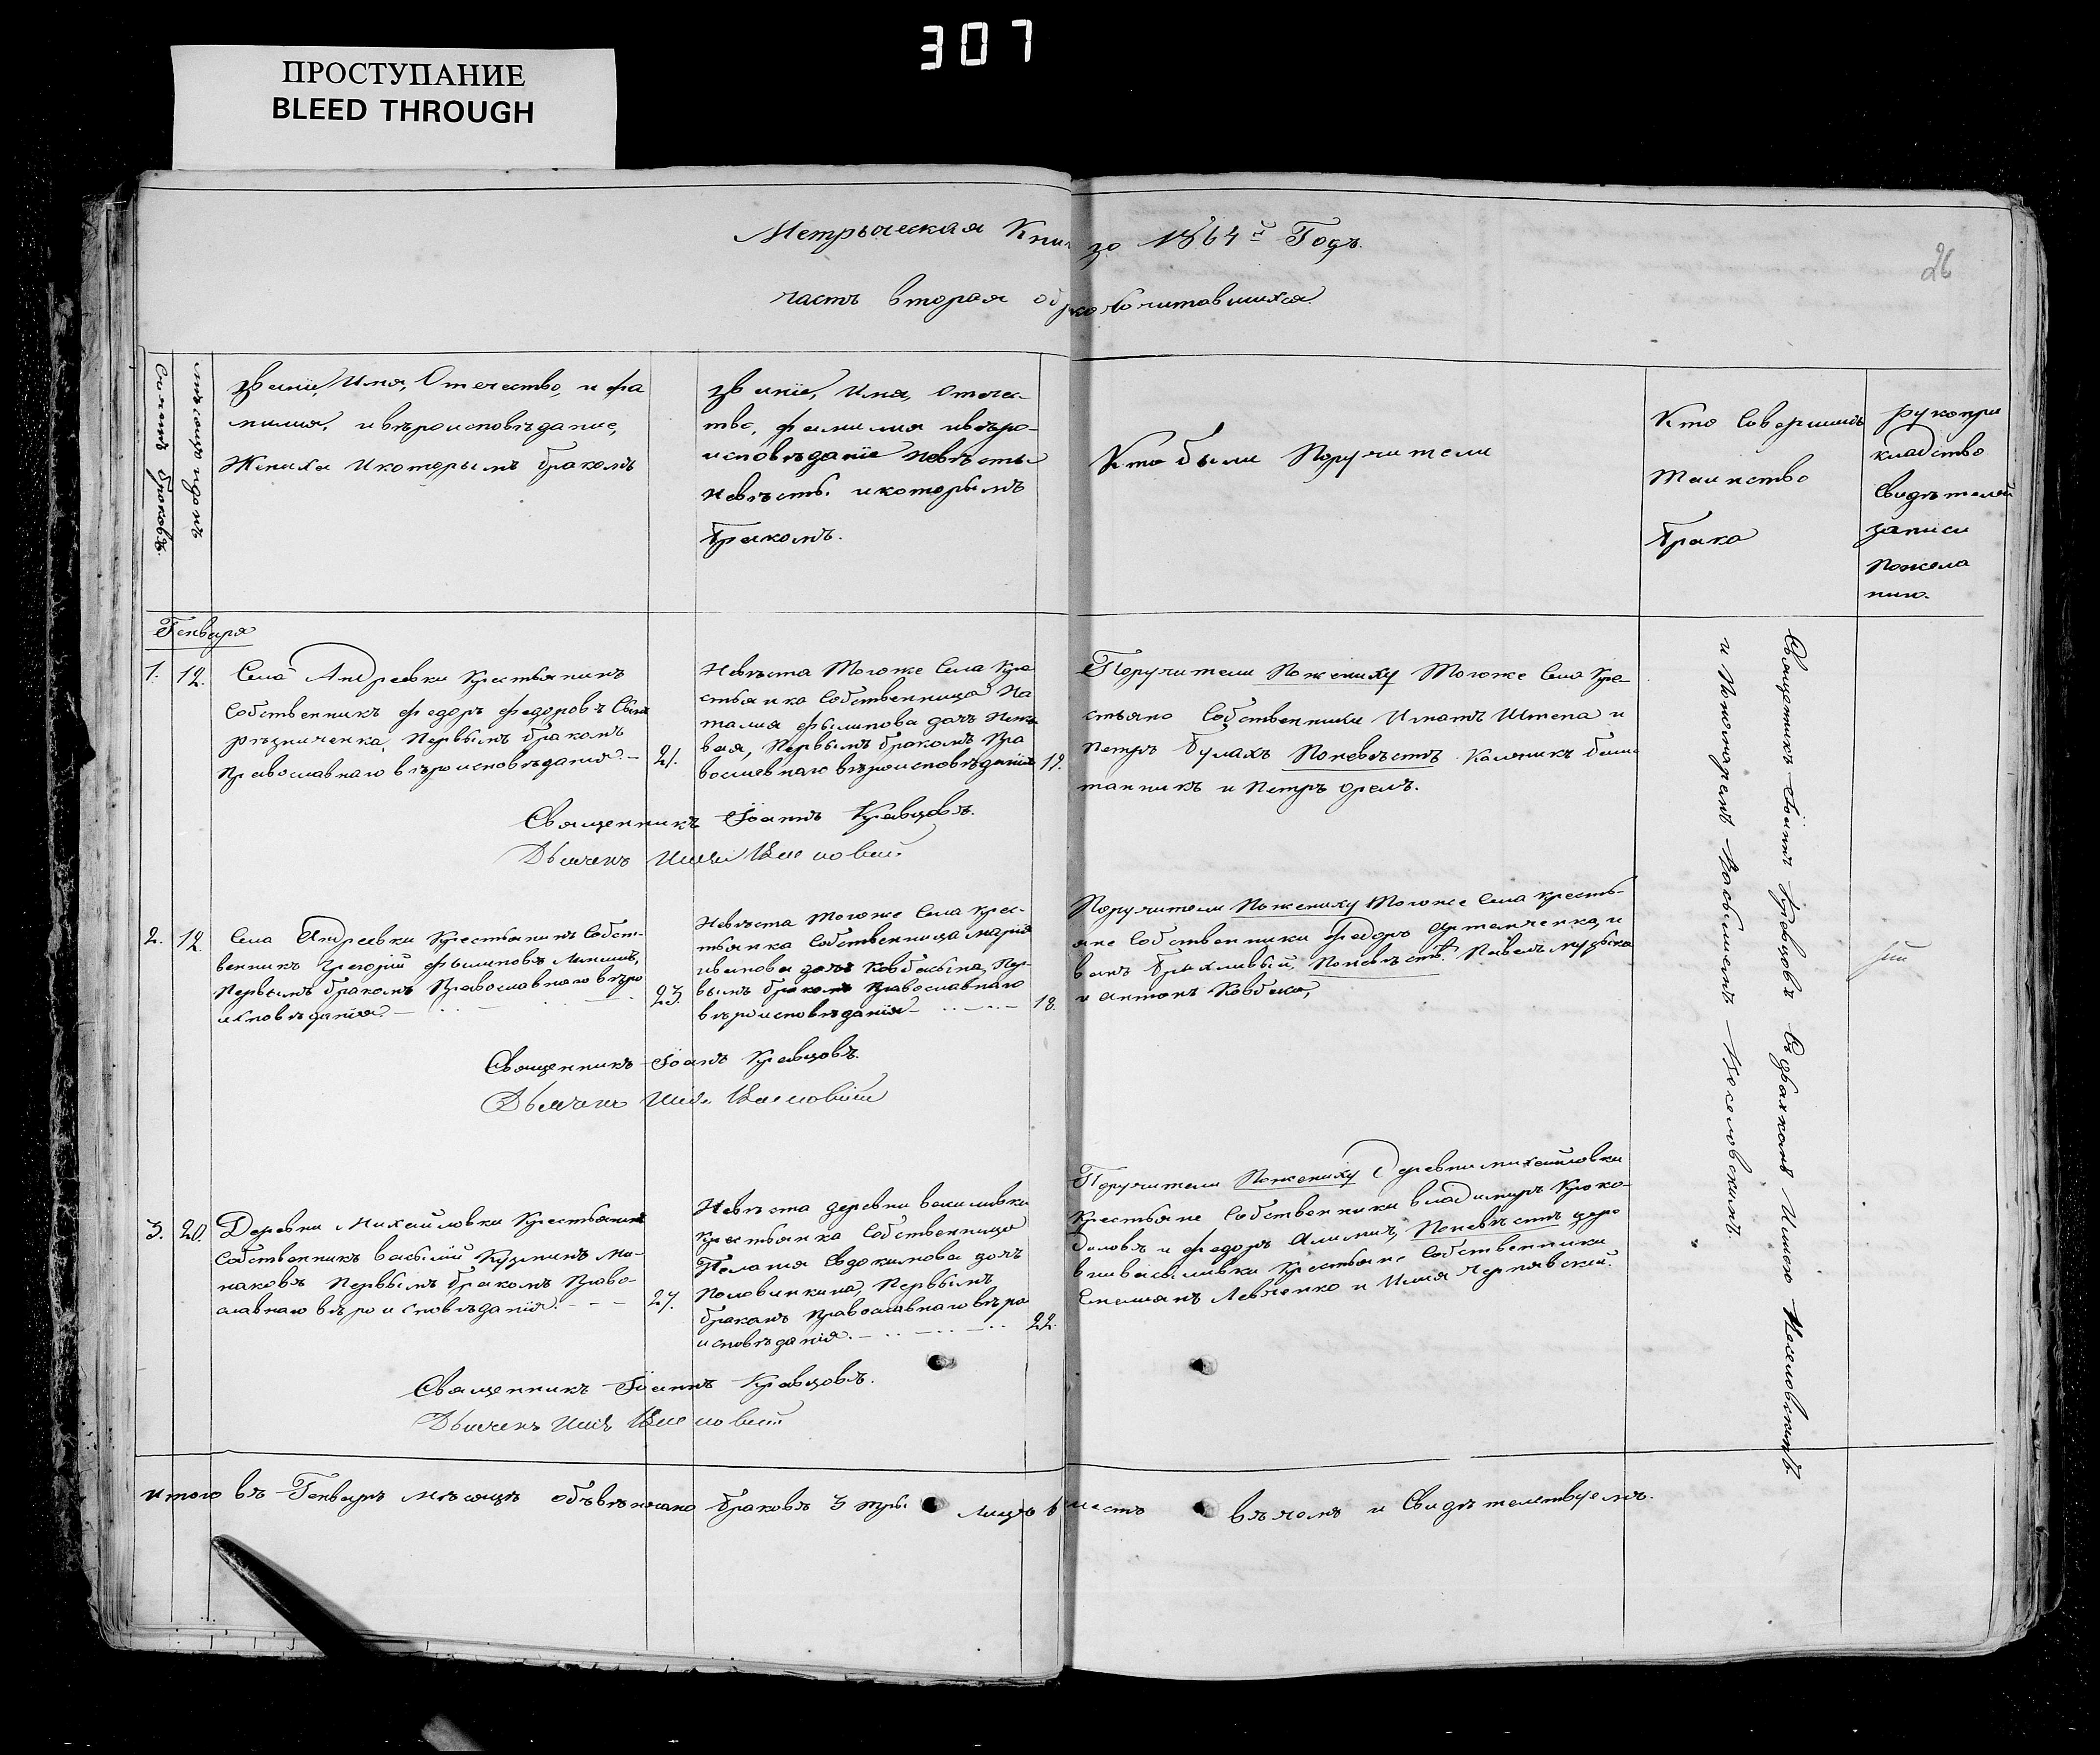 307
ПРОСТУПАНИЕ
BLEED THROUGH
26
Метрическая Книга за 1864й Годъ.
часть вторая о бракосочитавшихся
Счетъ браковъ.
месяцъ и день
Званіе, Имя, Отечество, и фа
милия, и вѣроисповѣдание,
Жениха и которымъ бракомъ
Званіе, Имя, отечес-
тво, фамилия и вѣро-
исповѣданіе невѣсты
невѣсты и которымъ
бракомъ.
Кто были Поручители
Кто Совершилъ
таинство
брака
рукопри
кладство
Свидѣтелей
записи
пожела
нию.
Генваря
1. 12. Села Андреевки Крестьянинъ
Собственникъ Федоръ Федоровъ Сынъ
Рѣзниченка, Первымъ бракомъ
Православнаго вѣроисповѣдания. — 21.
Невѣста Тогоже Села Кре
стьянка Собственница На
талия Филипова дочь
Первымъ бракомъ Пра
вославнаго вѣроисповѣданія 19.
Поручители По жениху Тогоже Села Кре-
стьяне Собственники Игнатъ Штепа и
Петръ Булахъ По невѣстѣ Каленикъ
и Петръ Орелъ.
Священникъ Іоаннъ Кравцовъ.
Дьячекъ
2. 12. Села Андреевки Крестьянинъ Собст-
венникъ Григорій Филиповъ
Первымъ бракомъ Православнаго вѣро
исповѣдания. — 23.
Невѣста Тогоже Села крес-
тьянка Собственница Марія
Иванова дочь Ковбасына, Пер-
вымъ бракомъ Православнаго
вѣроисповѣданія — 18.
Поручители По жениху Тогоже Села кресть-
яне Собственники Федоръ Артемченка, и
По невѣстѣ. Павелъ Музыка
и Антонъ Ковбаса,
Священникъ Іоанъ Кравцовъ.
Дьячекъ
3. 20. Деревни Михайловки Крестьянинъ
Собственникъ Василий Кузминъ Мо-
наковъ Первымъ бракомъ Право-
славнаго вѣроисповѣдания. — — 27.
Невѣста деревни Василивки
крестьянка Собственница
Пелагия Евдокимова дочь
Половинкина, Первымъ
бракомъ Православнаго вѣро
исповѣдания. — 22.
Поручители По жениху Деревни Михайловки
Крестьяне Собственники Владимиръ Кроко-
диловъ и Федоръ По невѣстѣ дере
вни Василивки Крестьяне Собственники
Емельянъ Левченко и Илия Чернявский.
Священникъ Іоаннъ Кравцовъ.
Дьячекъ
Священникъ Іоаннъ Кравцовъ Съ дьячкомъ Илиею
и Пономаремъ Васылиемъ
Итого въ Генварѣ мѣсяцѣ обвѣнчано браковъ 3 три. Лицъ 6 шесть въ чемъ и Свидѣтелствуемъ.